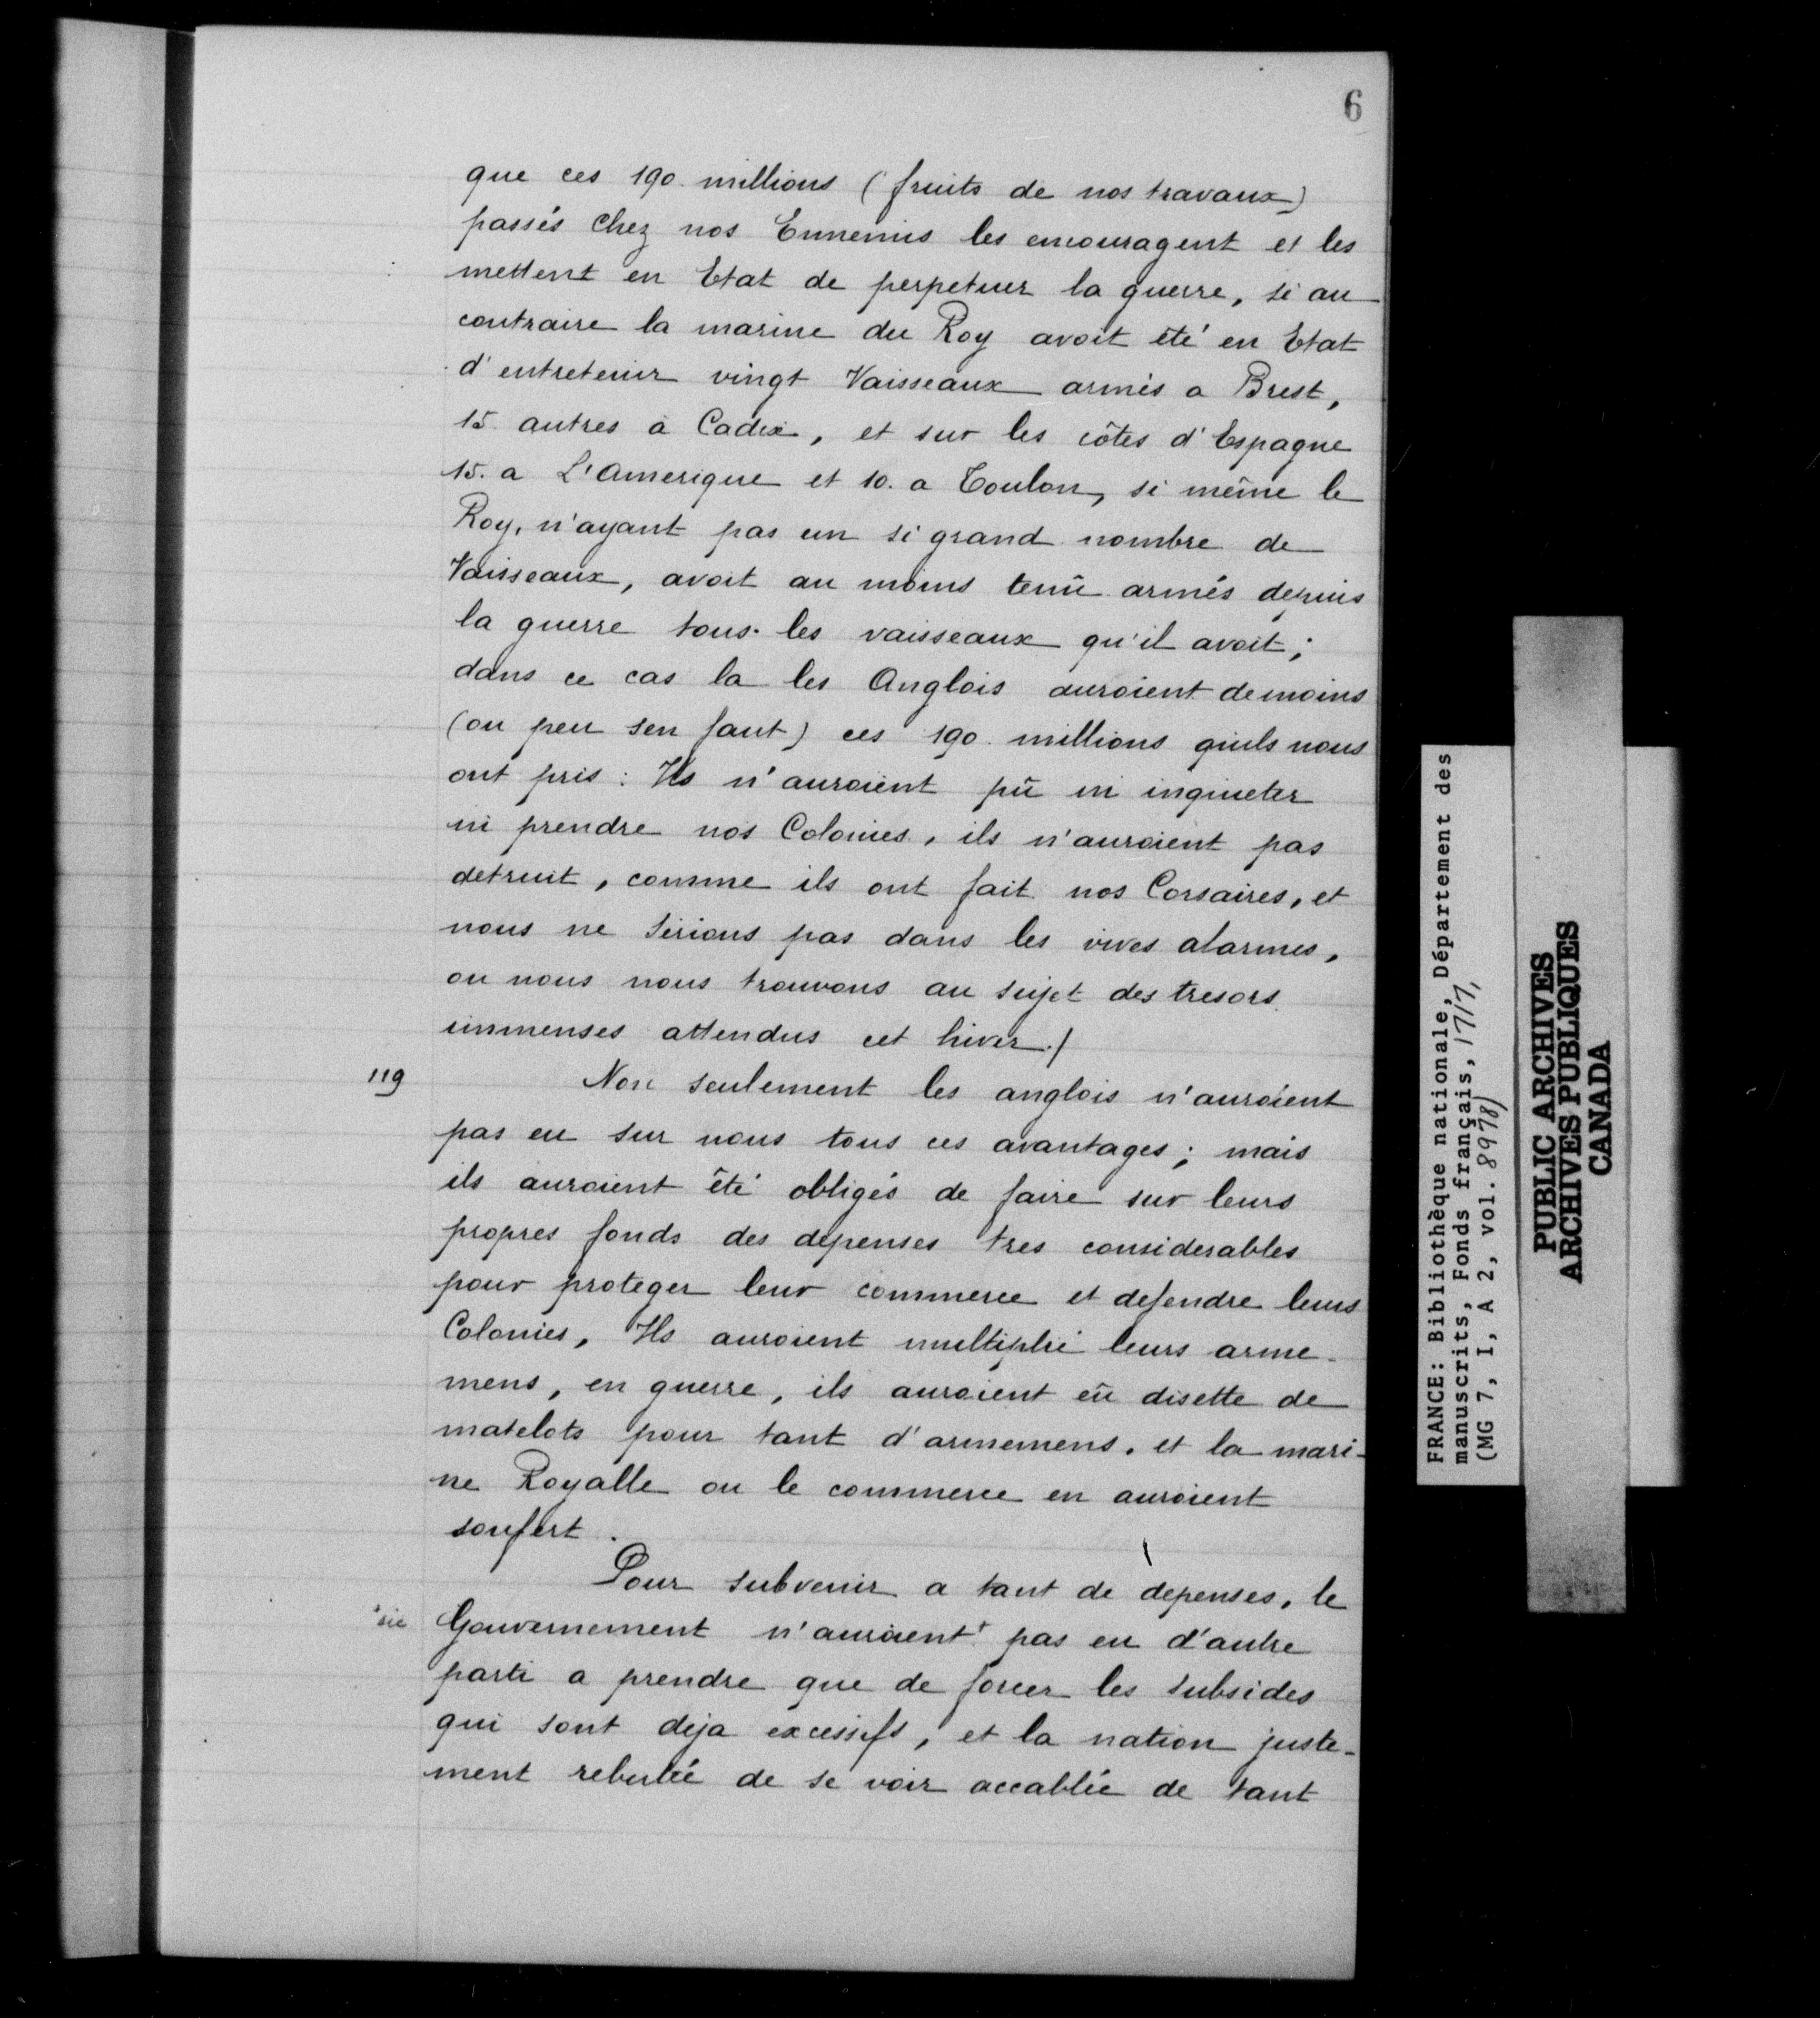 6
que ces 190. millions (fruits de nos travaux)
passés Chez nos Ennemis les encouragent et les
mettent en Etat de perpetuer la guerre, si au
contraire la marine du Roy avoit êté en Etat
d'entretenir vingt Vaisseaux armés a Brest,
15. autres a Cadix, et sur les côtes d'Espagne
15. a L'Amerique et 10. a Toulon, si même le
Roy, n'ayant pas un si grand nombre de
Vaisseaux, avoit au moins tenû armés depuis
la guerre tous les vaisseaux qu'il avoit;
dans ce cas la les Anglois auroient de moins
(ou peu sen faut) ces 190. millions qiuls nous
ont pris: Ils n'auroient pû ni inquieter
ni prendre nos Colonies, ils n'auroient pas
detruit, comme ils ont fait nos Corsaires, et
nous ne serions pas dans les vives alarmes,
ou nous nous trouvons au sujet des tresors
immenses attendus cet hiver./
119 Non seulement les anglois n'auroient
pas eu sur nous tous ces avantages; mais
ils auroient êté obligés de faire sur leurs
propres fonds des depenses tres considerables
pour proteger leur commerce et defendre leurs
Colonies, Ils auroient multiplié leurs arme-
mens, en guerre, ils auroient eû disette de
matelots pour tant d'armemens, et la mari-
ne Royalle ou le commerce en auroient
soufert.
Pour subvenir a tant de depenses, le
sic Gouvernement n'auroient pas eu d'autre
parti a prendre que de forcer les subsides
qui sont deja excessifs, et la nation juste-
ment rebutée de se voir accablée de tant
FRANCE: Bibliothèque nationale, Département des
manuscrits, Fonds français, 1717,
(MG 7, I, A 2, vol. 8978)
PUBLIC ARCHIVES
ARCHIVES PUBLIQUES
CANADA